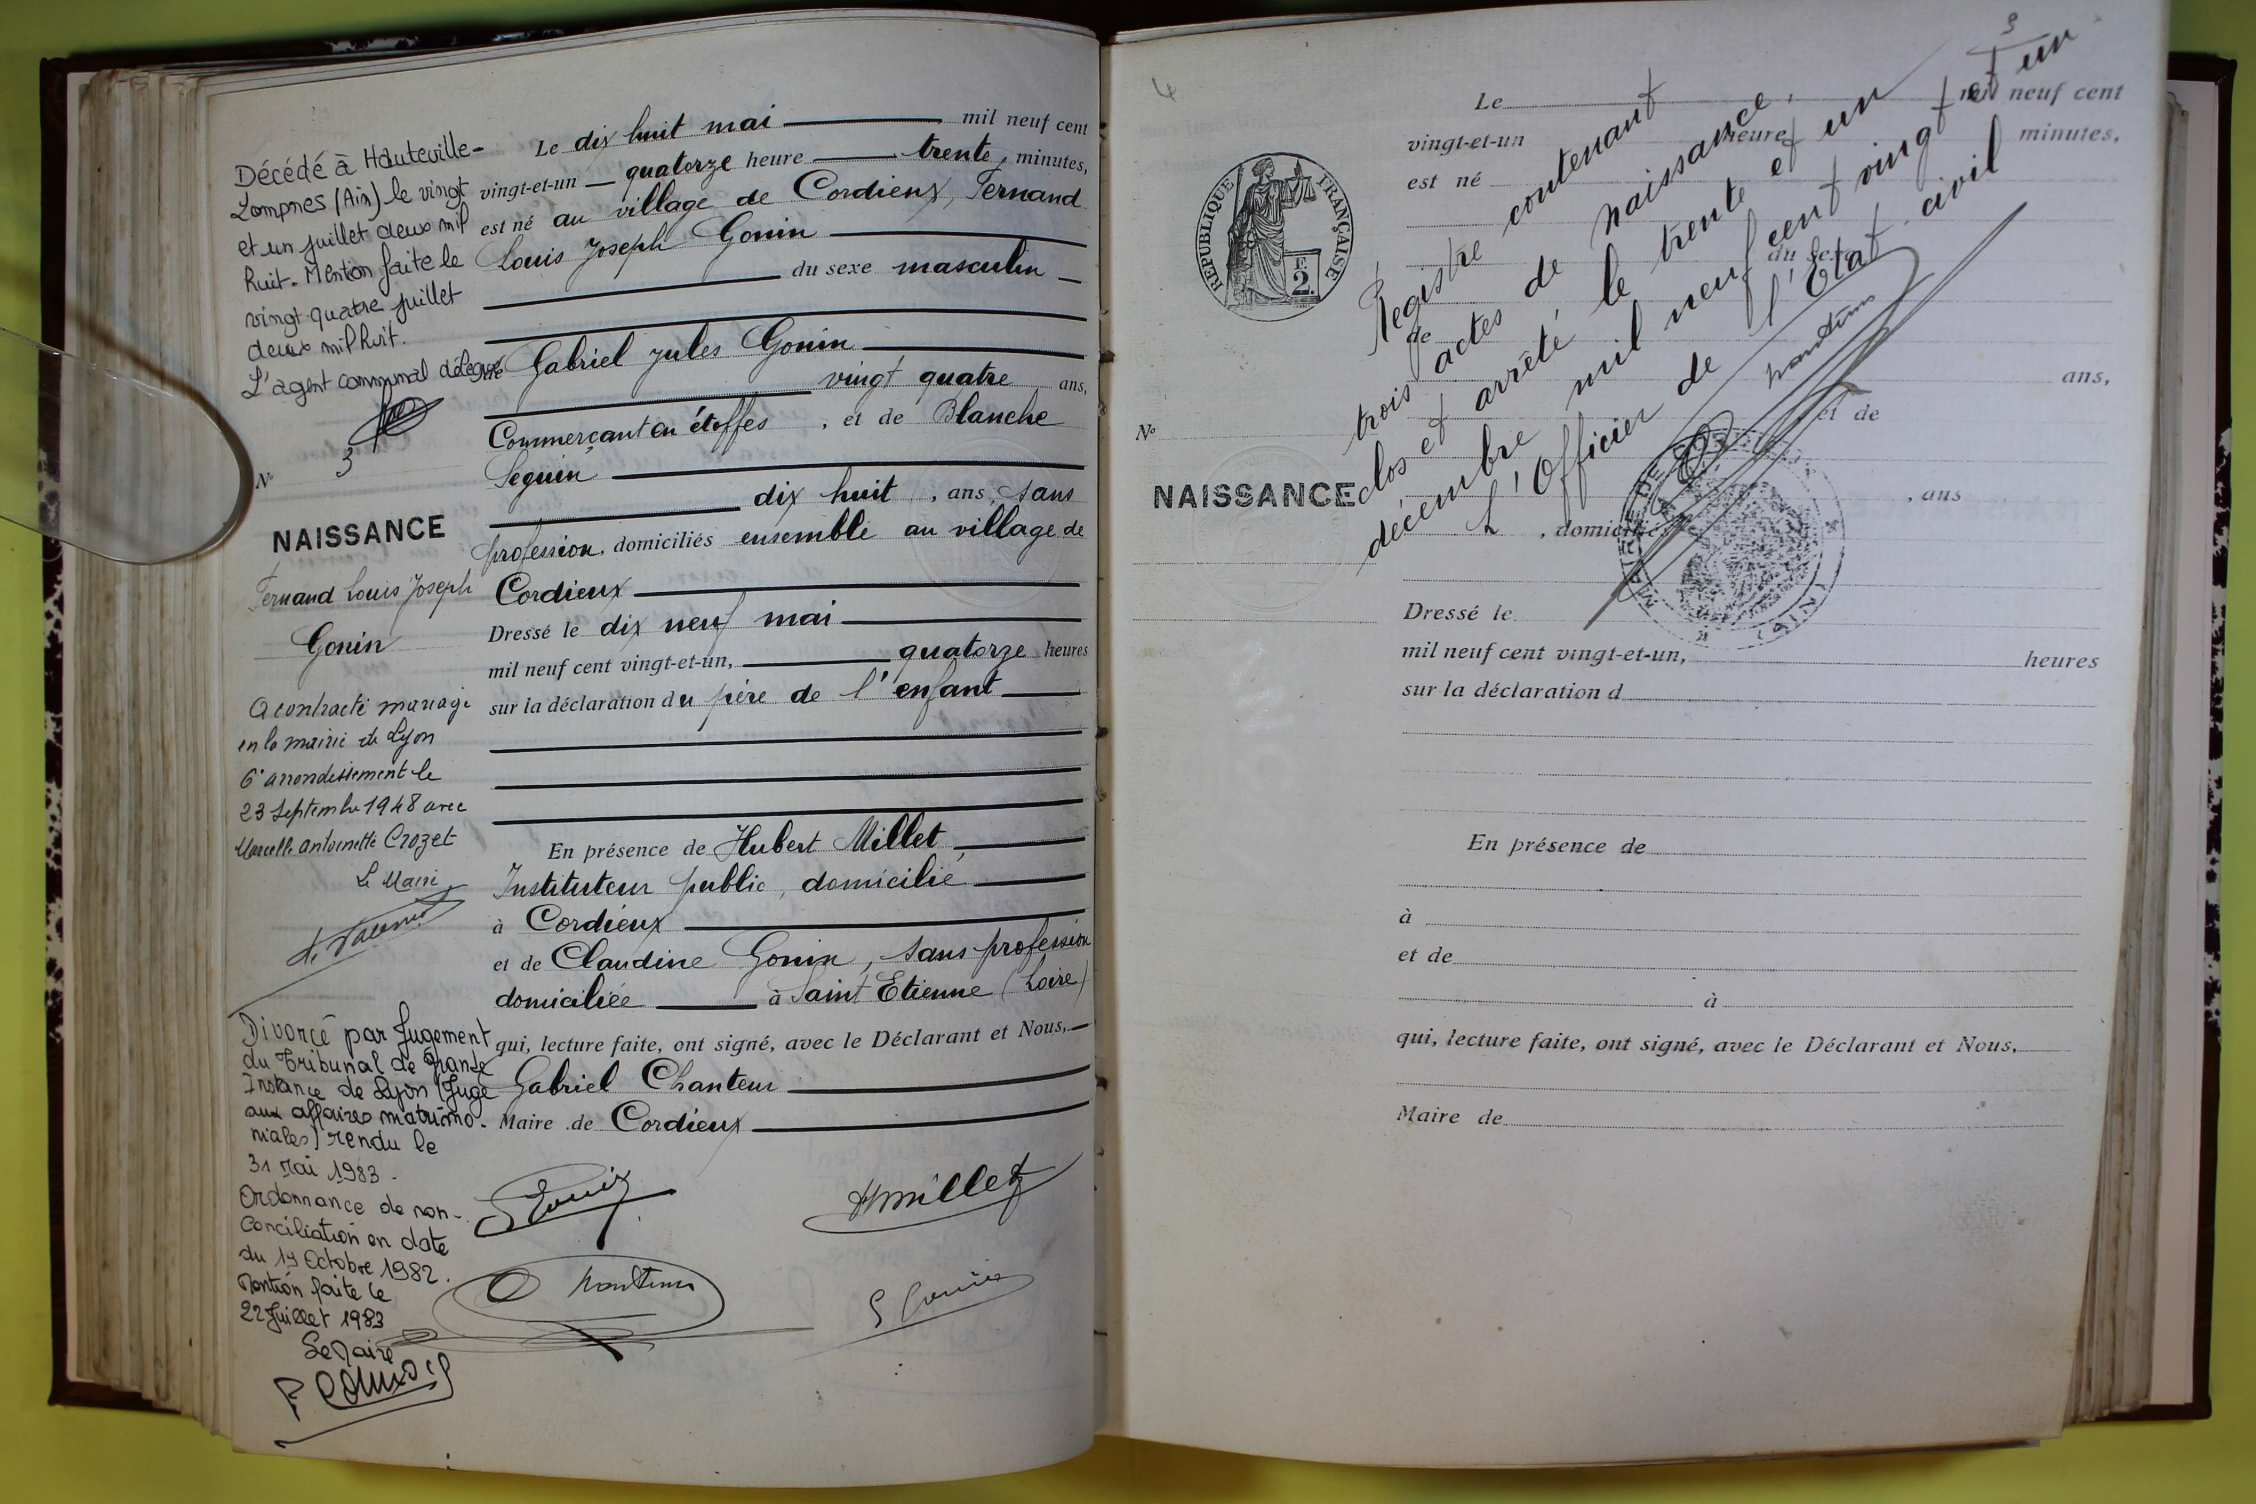 Décédé à Hauteville-
Lompnes (Ain) le vingt
et un juillet deux mil
huit. Mention faite le
vingt quatre juillet
deux mil huit.
L'agent communal délégué
N° 3
NAISSANCE
Fernand Louis Joseph
Gonin
a contracté mariage
en la mairie de Lyon
6e arrondissement le
23 Septembre 1948 avec
Marcelle Antoinette Crozet
Le Maire
Divorcé par Jugement
du Tribunal de Grande
Instance de Lyon (Juge
aux affaires matrimo-
niales) rendu le
31 Mai 1983.
Ordonnance de non-
Conciliation en date
du 19 Octobre 1982.
Mention faite le
22 Juillet 1983
Le Maire
Le dix huit mai mil neuf cent
vingt-et-un quatorze heure trente, minutes,
est né au village de Cordieux, Fernand
Louis Joseph Gonin
du sexe masculin
de Gabriel Jules Gonin
vingt quatre ans,
Commerçant en étoffes, et de Blanche
Seguin
dix huit, ans, sans
profession, domiciliés ensemble au village de
Cordieux
Dressé le dix neuf mai
mil neuf cent vingt-et-un, quatorze heures
sur la déclaration du père de l'enfant
En présence de Hubert Millet,
Instituteur public, domicilié
à Cordieux
et de Claudine Gonin, sans profession
domiciliée à Saint Etienne (Loire)
qui, lecture faite, ont signé, avec le Déclarant et Nous,
Gabriel Chanteur
Maire de Cordieux
Gonin
Hmillet
Chanteur
G Gonin
4
3
RÉPUBLIQUE FRANÇAISE
2F.
Le mil neuf cent
vingt-et-un heure minutes,
est né
du sexe
de
ans,
N° et de
NAISSANCE , ans
, domiciliés
Dressé le
mil neuf cent vingt-et-un, heures
sur la déclaration d
En présence de
à
et de
à
qui, lecture faite, ont signé, avec le Déclarant et Nous,
Maire de
Registre contenant
trois actes de naissance,
clos et arrêté le trente et un
décembre mil neuf cent vingt et un
L'Officier de l'Etat civil
Chanteur
MAIRIE DE
(AIN)